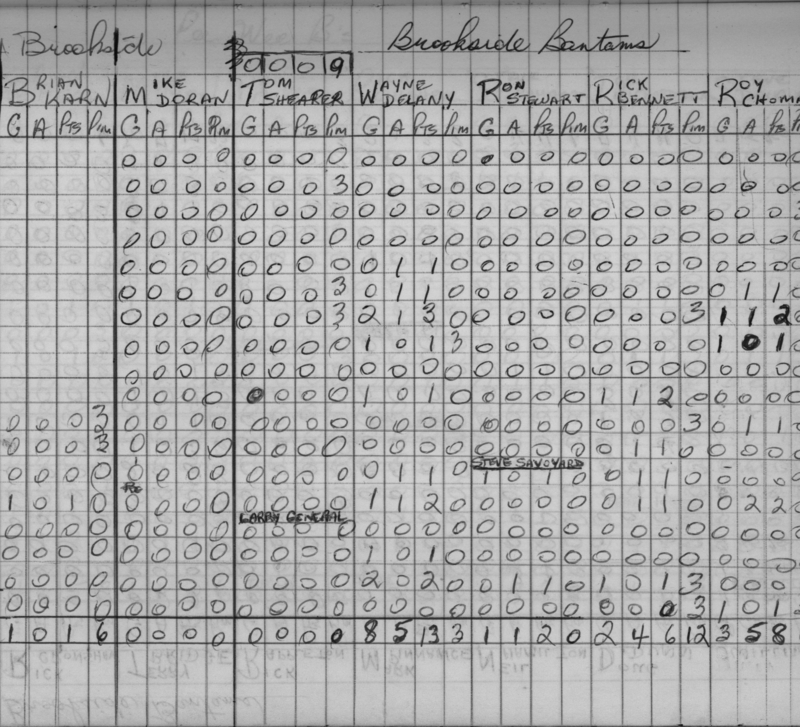 Brookside Brookside Bantams
0 0 0 9
BRIAN KARN MIKE DORAN TOM SHEARER WAYNE DELANY RON STEWART RICK BENNETT ROY CHOMA
G A Pts Pim G A Pts Pim G A Pts Pim G A Pts Pim G A Pts Pim G A Pts Pim G A Pts
0 0 0 0 0 0 0 0 0 0 0 0 0 0 0 0 0 0 0 0 0 0 0
0 0 0 0 0 0 0 3 0 0 0 0 0 0 0 0 0 0 0 0 0 0 0
0 0 0 0 0 0 0 0 0 0 0 0 0 0 0 0 0 0 0 0 0 0 0
0 0 0 0 0 0 0 0 0 0 0 0 0 0 0 0 0 0 0 0 0 0 0
0 0 0 0 0 0 0 0 0 1 1 0 0 0 0 0 0 0 0 0 0 0 0
0 0 0 0 0 0 0 3 0 1 1 0 0 0 0 0 0 0 0 0 0 1 1
0 0 0 0 0 0 0 3 2 1 3 0 0 0 0 0 0 0 0 3 1 1 2
0 0 0 0 0 0 0 0 1 0 1 3 0 0 0 0 0 0 0 0 1 0 1
0 0 0 0 0 0 0 0 0 0 0 0 0 0 0 0 0 0 0 0 0 0 0
0 0 0 0 0 0 0 0 1 0 1 0 0 0 0 0 1 1 2 0 0 0 0
0 0 0 3 0 0 0 0 0 0 0 0 0 0 0 0 0 0 0 0 0 0 0 3 0 1 1
0 0 0 3 0 0 0 0 0 0 0 0 0 0 0 0 0 0 0 0 0 1 1 0 0 0 0
STEVE SAVOYARD
0 0 0 0 0 0 0 0 0 0 0 0 0 1 1 0 1 0 1 0 0 1 1 0 0 0 0
1 0 1 0 0 0 0 0 0 0 0 0 1 1 2 0 0 0 0 0 0 1 1 0 0 2 2
LARRY GENERAL
0 0 0 0 0 0 0 0 0 0 0 0 0 0 0 0 0 0 0 0 0 0 0 0 0 0 0
0 0 0 0 0 0 0 0 0 0 0 0 1 0 1 0 0 0 0 0 0 0 0 0 0 0 0
0 0 0 0 0 0 0 0 0 0 0 0 2 0 2 0 0 1 1 0 1 0 1 3 0 0 0
0 0 0 0 0 0 0 0 0 0 0 0 0 0 0 0 0 0 0 0 0 0 0 3 1 0 1
1 0 1 6 0 0 0 0 0 0 0 0 8 5 13 3 1 1 2 0 2 4 6 12 3 5 8